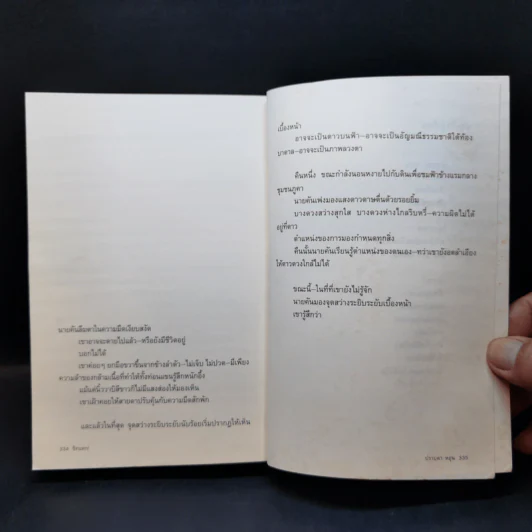 นายคันลืมตาในความมืดเงียบสงัด
เขาอาจจะตายไปแล้ว–หรือยังมีชีวิตอยู่
บอกไม่ได้
เขาค่อยๆ ยกมือขวาขึ้นจากข้างลำตัว–ไม่เจ็บ ไม่ปวด–มีเพียง
ความล้าของกล้ามเนื้อที่ทำให้ทั้งท่อนแขนรู้สึกหนักอึ้ง
แม้แต่นิ้ว
เขาเฝ้าคอยให้สายตาปรับคุ้นกับความมืดสักพัก
และแล้วในที่สุด จุดสว่างระยิบระยับนับร้อยเริ่มปรากฏให้เห็น
334
เบื้องหน้า
อาจจะเป็นดาวบนฟ้า–อาจจะเป็นอัญมณีธรรมชาติใต้ท้อง
บาดาล–อาจจะเป็นภาพลวงตา
คืนหนึ่ง ขณะกำลังนอนหงายไปกับดินเพื่อชมฟ้าข้างแรมกลาง
ชุมชนภูคา
นายคันเพ่งมองแสงดาวดาษดื่นด้วยรอยยิ้ม
บางดวงสว่างสุกใส บางดวงห่างไกลริบหรี่–ความมืดไม่ได้
อยู่ที่ดาว
ตำแหน่งของการมองกำหนดทุกสิ่ง
คืนนั้นนายคันเรียนรู้ตำแหน่งของตนเอง–ทว่าเขายังอดลำเอียง
ให้ดาวดวงใกล้ไม่ได้
ขณะนี้–ในที่ที่เขายังไม่รู้จัก
นายคันมองจุดสว่างระยิบระยับเบื้องหน้า
เขารู้สึกว่า
ปราบดา หยุ่น 335